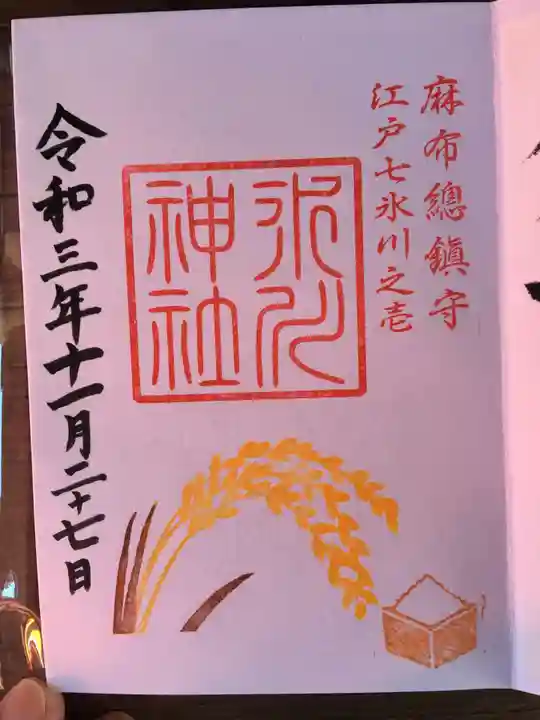 麻布總鎮守
江戸七氷川之壱
氷川
神社
令和三年十一月二十七日